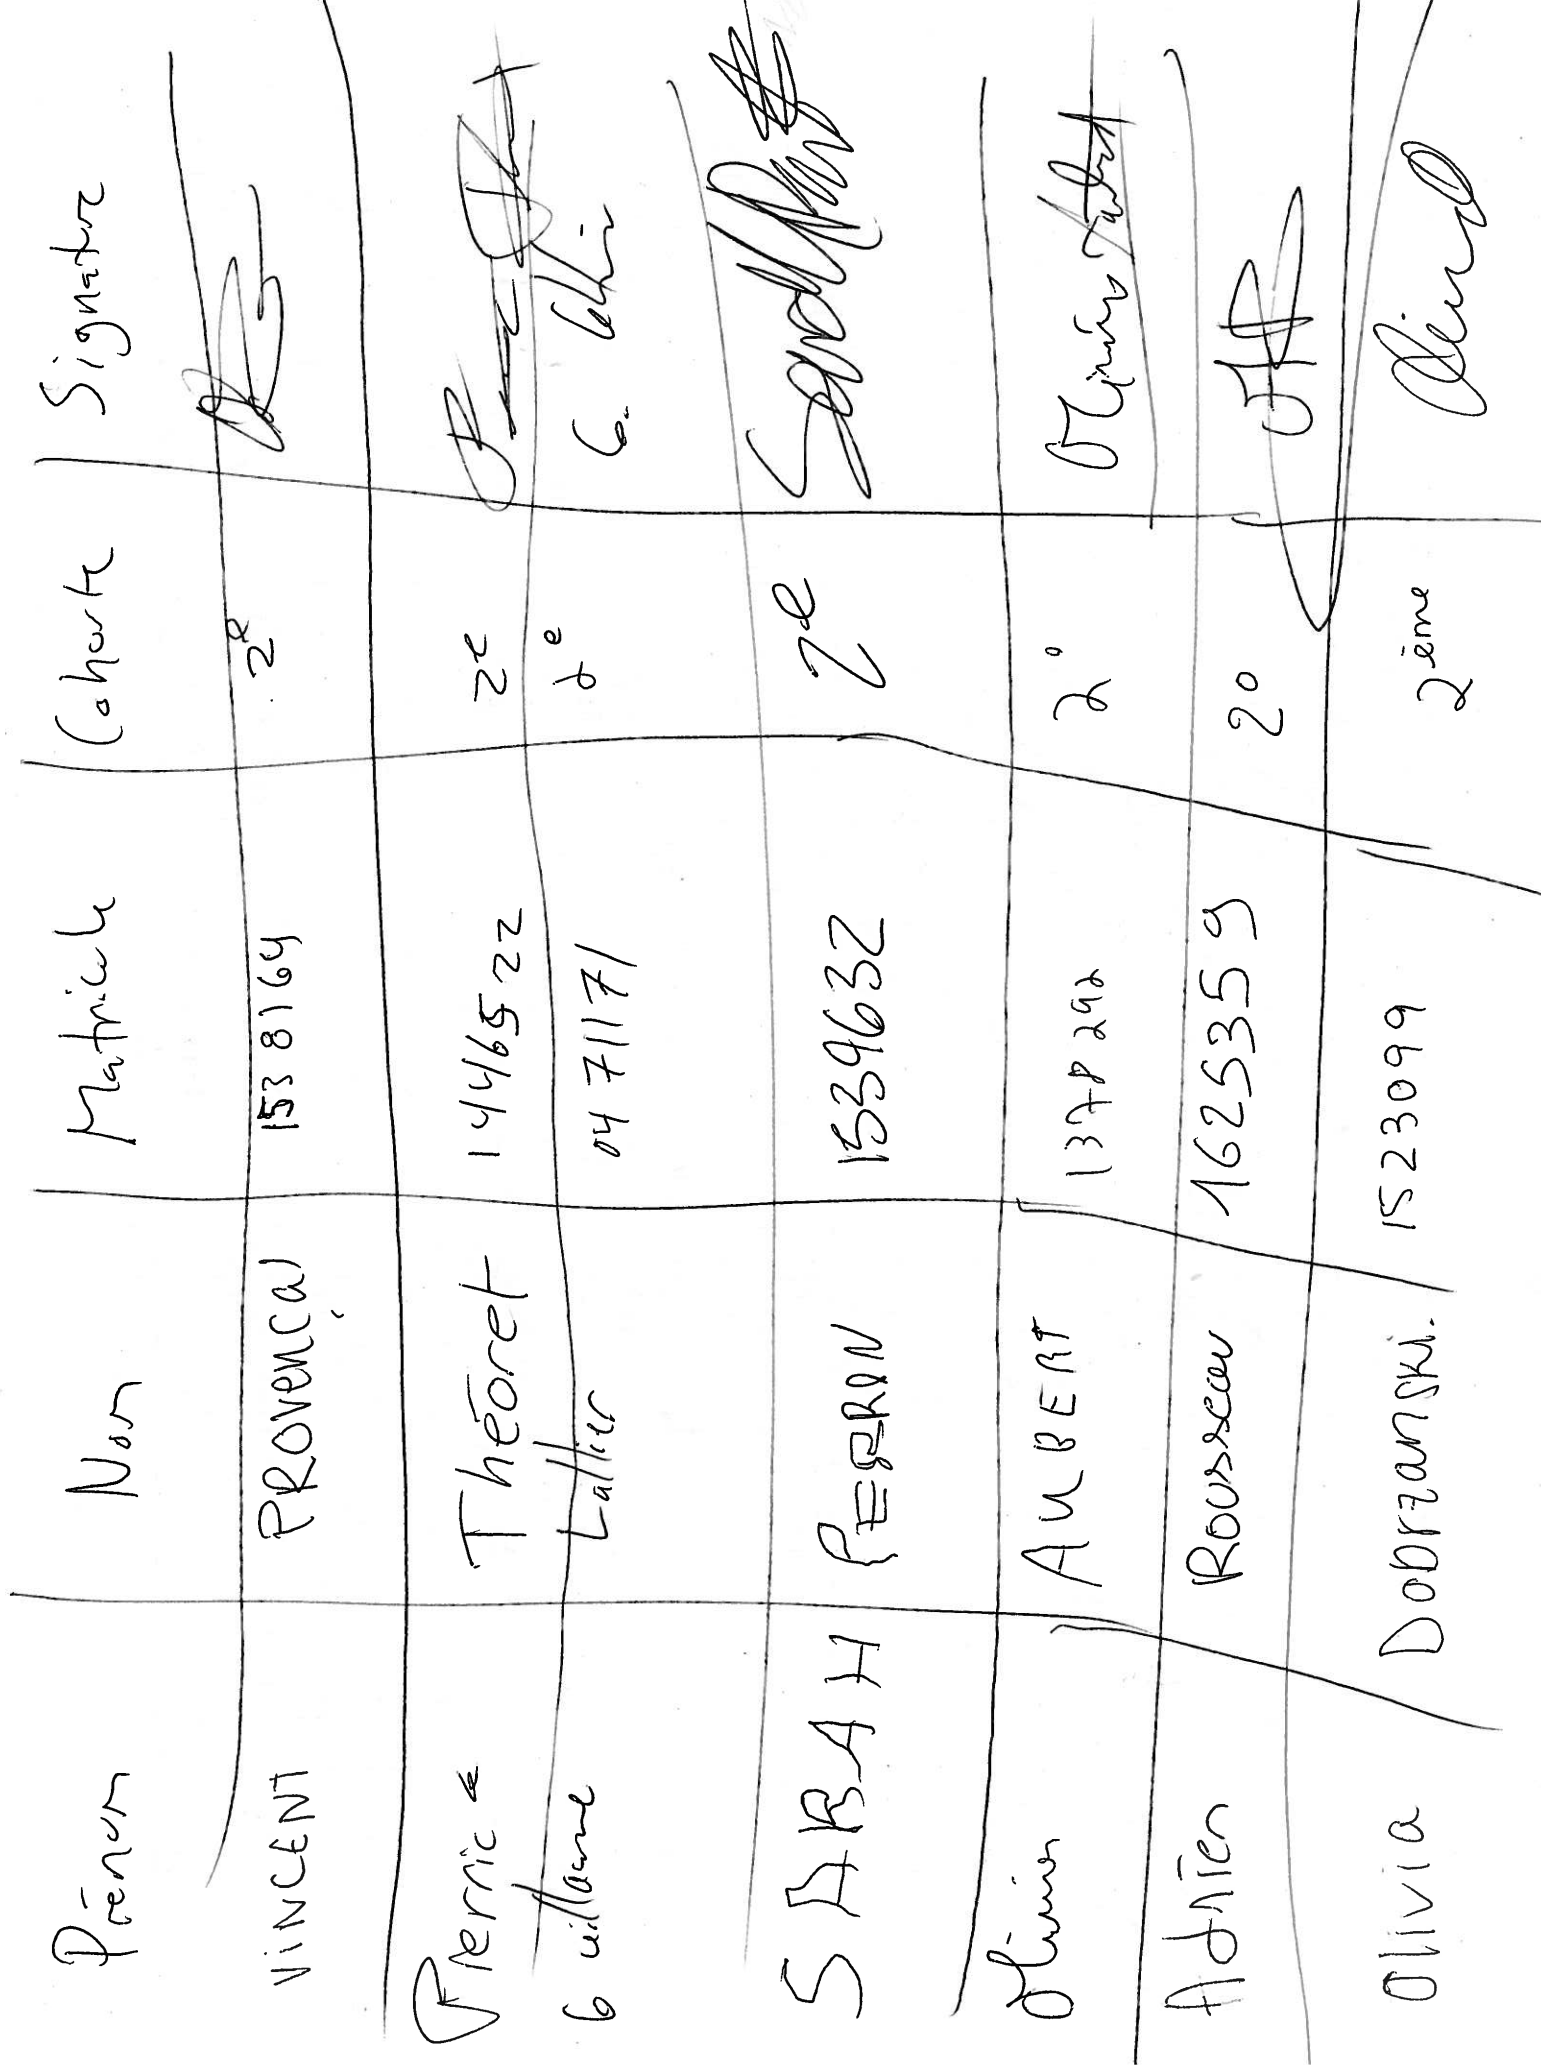 Prénom Nom Matricule Cohorte Signature
VINCENT PROVENÇAL 1538164 2e
Pierric Théoret 1446522 2e
Guillaume Lallier 0471171 2e G. Lallier
SARAH PERRON 1539632 2e
Olivier AUBERT 1378292 2e Olivier Aubert
Adrien Rousseau 1625359 2e
Olivia Dobrzanski. 1523099 2ème